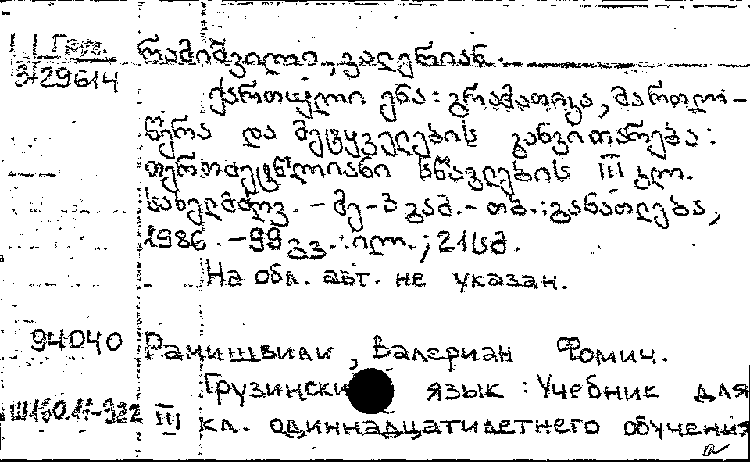 Груз.
რამიშვილი, ვალერიან.
3-29614
ქართული ენა: გრამატიკა, მართლ-
წერა და მეტყველების განვითარება:
თერთმეტწლიანი სწავლების III კლ.
სახელმძღვ. – მე-3 გამ. – თბ.: განათლება,
1986. – 99 გვ.: ილ.; 21 სმ.
На обл. авт. не указан.
94040 Рамишвили, Валериан Фомич.
Грузинский язык: Учебник для
III кл. одиннадцатилетнего обучения